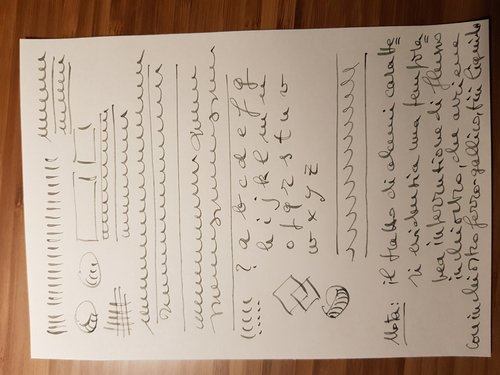 a b c d e f g
h i j k l m n
o p q r s t u v
w x y z
Nota: il tratto di alcuni caratte=
ri evidenzia una tempora=
nea interruzione di flusso
inchiostro, che avviene
con inchiostro ferro-gallico, più liquido